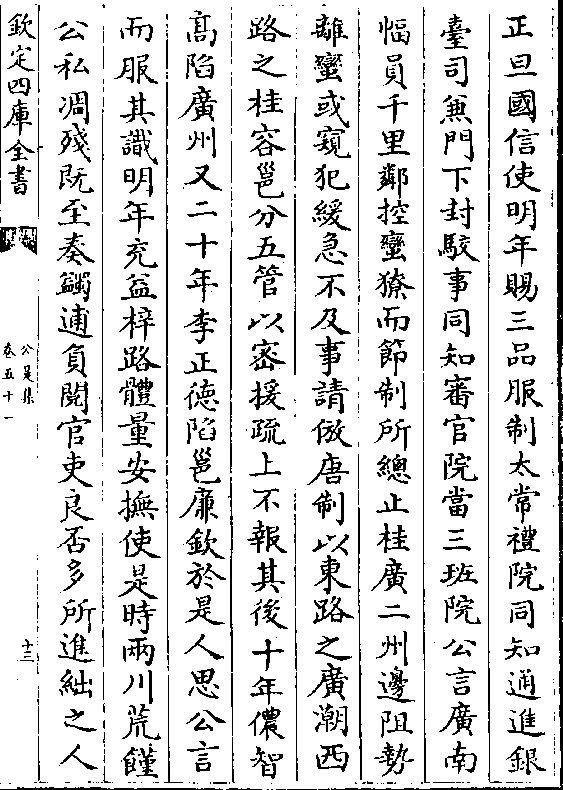 正旦國信使明年賜三品服制太常禮院同知通進銀
臺司兼門下封駁事同知審官院當三班院公言廣南
幅員千里鄰控蠻獠而節制所總止桂廣二州邊阻勢
離蠻或窺犯緩急不及事請倣唐制以東路之廣潮西
路之桂容邕分五管以密援疏上不報其後十年儂智
高陷廣州又二十年李正德陷邕亷欽於是人思公言
而服其識明年充益梓路體量安撫使是時兩川荒饉
公私凋殘既至奏蠲逋負閱官吏良否多所進絀之人
欽定四庫全書
公是集
卷五十一
十三